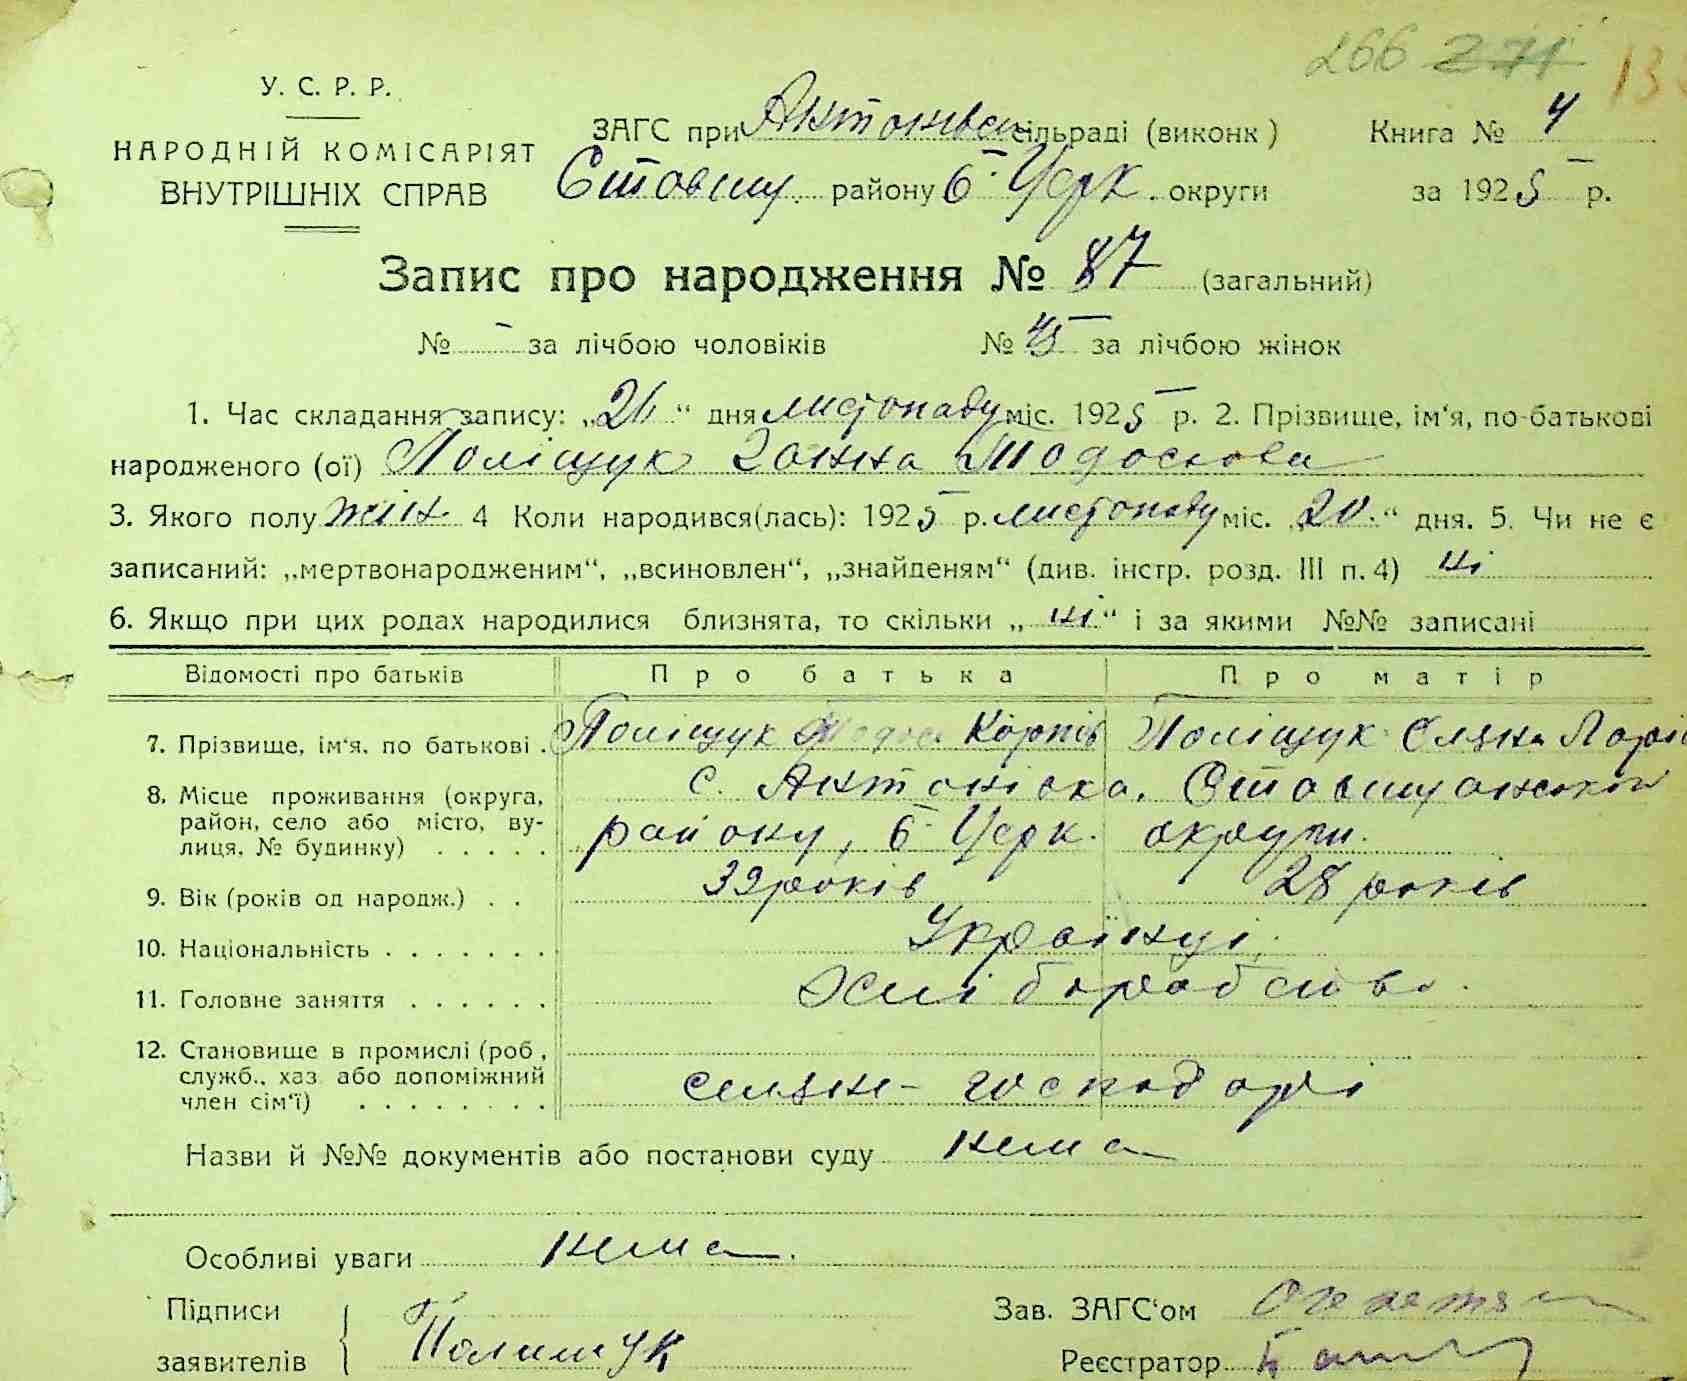 266 271 13
У. С. Р. Р.
НАРОДНІЙ КОМІСАРІЯТ
ВНУТРІШНІХ СПРАВ
ЗАГС при Антонівск сільраді (виконк) Книга № 4
Ставищ. району Б-Церк. округи за 1925 р.
Запис про народження № 87 (загальний)
№ - за лічбою чоловіків № 45 за лічбою жінок
1. Час складання запису: „26“ дня листопаду міс. 1925 р. 2. Прізвище, ім'я, по-батькові
народженого (ої) Поліщук Ганна Тодосьова
3. Якого полу жін. 4 Коли народився(лась): 1925 р. листопаду міс. „20.“ дня. 5. Чи не є
записаний: „мертвонародженим“, „всиновлен“, „знайденям“ (див. інстр. розд. III п. 4) ні
6. Якщо при цих родах народилися близнята, то скільки „ні“ і за якими №№ записані
Відомості про батьків Про батька Про матір
7. Прізвище, ім'я, по батькові . Поліщук Тодос Корнів Поліщук Єлена
8. Місце проживання (округа, с. Антонівка, Ставищанського
район, село або місто, ву- району, Б-Церк. округи.
лиця, № будинку) . . . . .
9. Вік (років од народж.) . . 39 років 28 років
10. Національність . . . . . . . Українці.
11. Головне заняття . . . . . . Хліборобство.
12. Становище в промислі (роб,
служб., хаз або допоміжний селяне-господарі
член сім'ї) . . . . . . . .
Назви й №№ документів або постанови суду нема
Особливі уваги нема.
Підписи Зав. ЗАГС'ом
заявителів Полишук Реєстратор